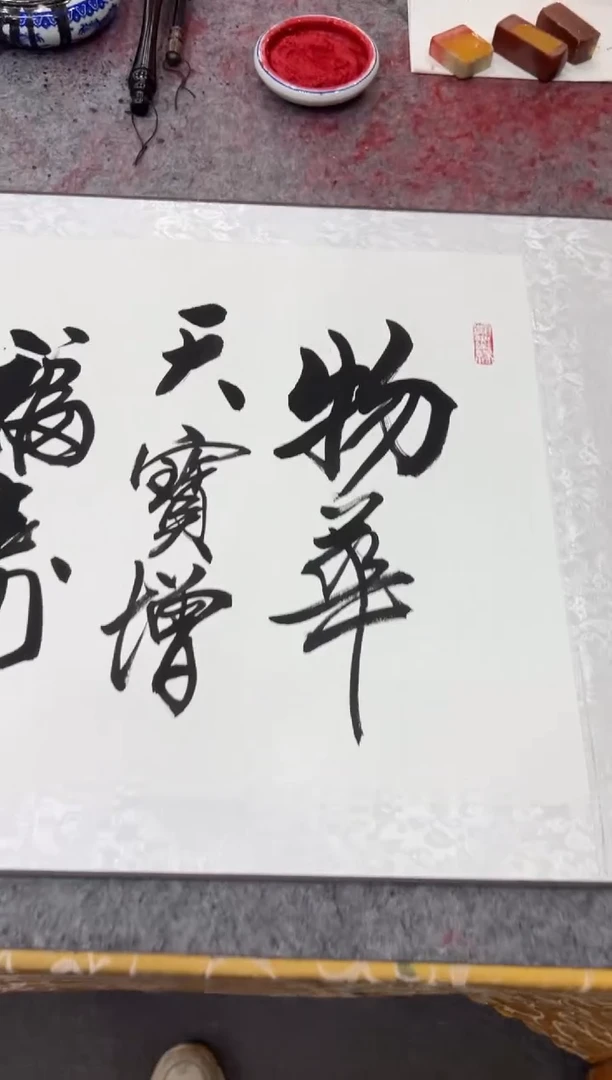 物華
天寶增
福壽